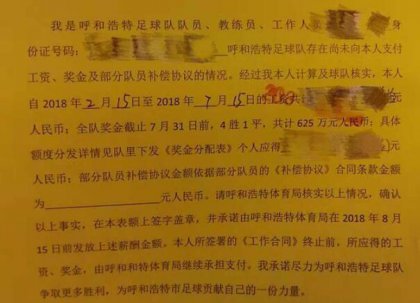 我是呼和浩特足球队队员、教练员、工作人
份证号码: 呼和浩特足球队存在尚未向本人支付
工资、奖金及部分队员补偿协议的情况。经过我本人计算及球队核实,本人
自2018年2月15日至2018年7月15日的工资共计 元
人民币;全队奖金截止7月31日前,4胜1平,共计625万元人民币;具体
额度分发详情见队里下发《奖金分配表》个人应得 元
人民币;部分队员补偿协议金额依据部分队员的《补偿协议》合同条款金额
为____元人民币。请呼和浩特体育局核实以上情况,确认
以上事实,在本表额上签字盖章,并承诺由呼和浩特体育局在2018年8月
15日前发放上述薪酬金额。本人所签署的《工作合同》终止前,所应得的工
资、奖金,由呼和和特体育局继续承担支付。我承诺尽力为呼和浩特足球队
争取更多胜利,为呼和浩特市足球贡献自己的一份力量。